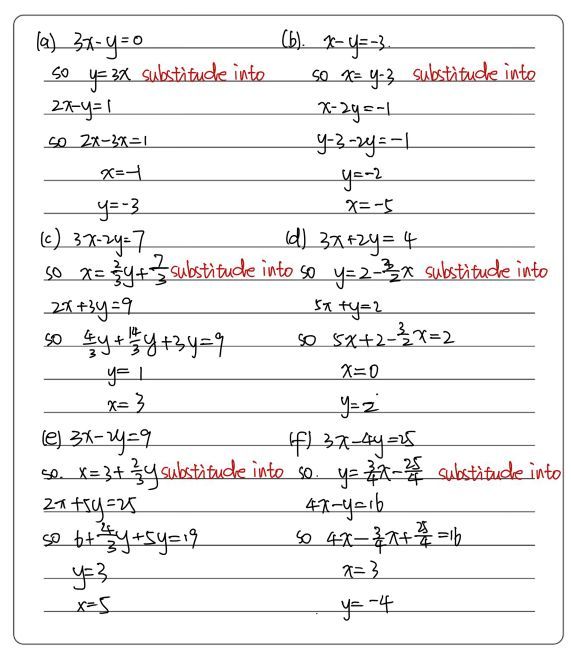 (a) 3x-y=0
so y=3x substitude into
2x-y=1
so 2x-3x=1
x=-1
y=-3
(b). x-y=-3.
so x= y-3 substitude into
x-2y=-1
y-3-2y=-1
y=-2
x=-5
(c) 3x-2y=7
so x=2/3y+7/3 substitude into
2x+3y=9
so 4/3y+14/3y+3y=9
y=1
x=3
(d) 3x+2y=4
so y=2-3/2x substitude into
5x+y=2
so 5x+2-3/2x=2
x=0
y=2
(e) 3x-2y=9
so. x=3+2/3y substitude into
2x+5y=25
so 6+4/3y+5y=19
y=3
x=5
(f) 3x-4y=25
so. y=3/4x-25/4 substitude into
4x-y=16
so 4x-3/4x+25/4=16
x=3
y=-4